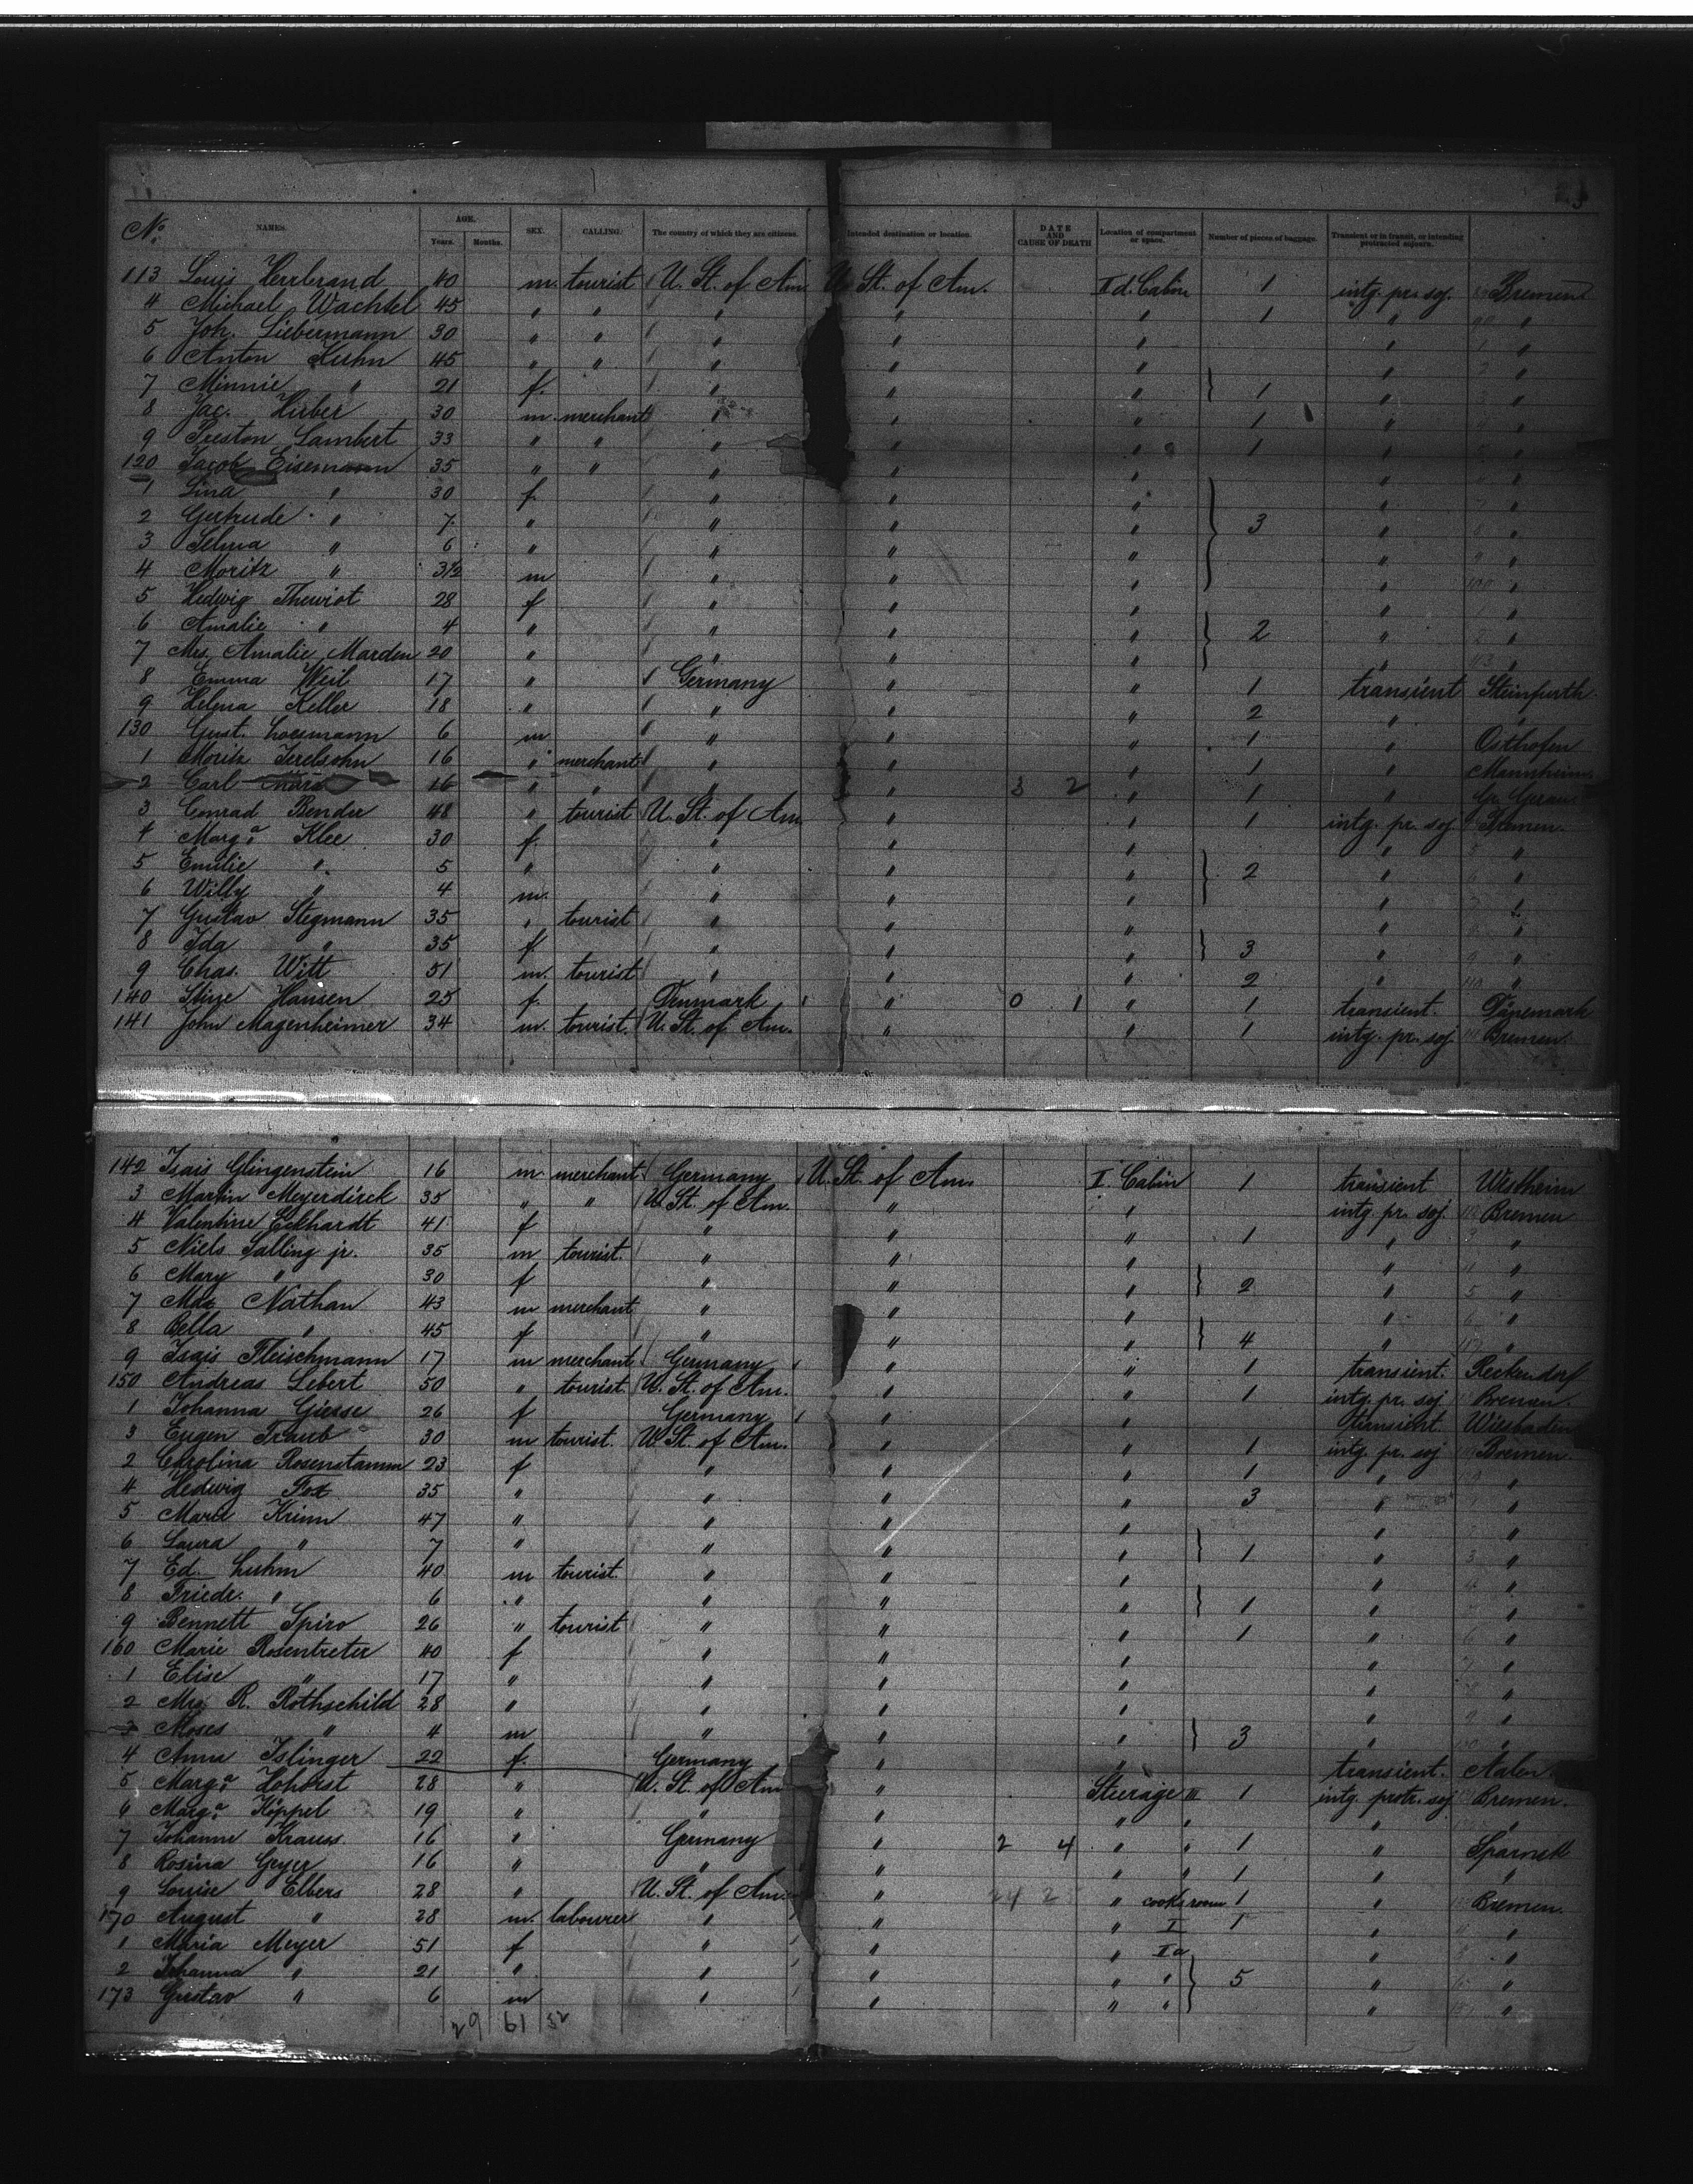 No. NAMES. AGE. Years. Months. SEX. CALLING. The country of which they are citizens. Intended destination or location. DATE AND CAUSE OF DEATH Location of compartment or space. Number of pieces of baggage. Transient or in transit, or intending protracted sojourn.
113 Louis Herrbrand 40 m. tourist U. St. of Am. U. St. of Am. IId. Cabin 1 intg. pr. soj. Bremen
4 Michael Wachtel 45 " " " " " 1 " "
5 Joh. Liebermann 30 " " " " " " "
6 Anton Kuhn 45 " " " " " " "
7 Minnie " 21 f. " " " } 1 " "
8 Jac. Hirber 30 m. merchant " " " 1 " "
9 Preston Lambert 33 " " " " " 1 " "
120 Jacob Eisemann 35 " " " " " " "
1 Lina " 30 f. " " " " "
2 Gertrude " 7 " " " " } 3 " "
3 Selma " 6 " " " " " "
4 Moritz " 3½ m " " " " "
5 Hedwig Theuriot 28 f " " " " "
6 Amalie " 4 " " " " } 2 " "
7 Mrs. Amalie Marden 20 " " " " " "
8 Emma Weil 17 " Germany " " 1 transient Steinfurth
9 Helma Keller 18 " " " " 2 " "
130 Gust. 6 m " " " 1 " Osthofen
1 Moritz 16 " merchant " " " 1 " Mannheim
2 Carl 16 " " " " 3 2 " 1 " Gr. Gerau
3 Conrad Bender 48 " tourist U. St. of Am. " " 1 intg. pr. soj. Bremen.
4 Marga. Klee 30 f. " " " " "
5 Emilie " 5 " " " " } 2 " "
6 Willy " 4 m. " " " " "
7 Gustav Stegmann 35 " tourist " " " " "
8 Ida " 35 f. " " " } 3 " "
9 Chas. Witt 51 m. tourist " " " 2 " "
140 Stine Hansen 25 f. Denmark " 0 1 " 1 transient. Dänemark
141 John Magenheimer 34 m. tourist. U. St. of Am. " " 1 intg. pr. soj. Bremen.
142 Isais Glingenstein 16 m merchant Germany U. St. of Am. I. Cabin 1 transient Westheim
3 Martin Meyerdirck 35 " " U. St. of Am. " " intg. pr. soj. Bremen
4 Valentine Eckhardt 41 f " " " 1 " "
5 Niels Salling jr. 35 m tourist. " " " " "
6 Mary " 30 f " " " } 2 " "
7 Max Nathan 43 m merchant " " " " "
8 Bella " 45 f " " " } 4 " "
9 Isais Fleischmann 17 m merchant Germany " " 1 transient. Reckendorf
150 Andreas Lebert 50 " tourist. U. St. of Am. " " 1 intg. pr. soj Bremen.
1 Johanna Giesse 26 f Germany " " transient. Wiesbaden
3 Eugen Traub 30 m tourist. U. St. of Am. " " 1 intg. pr. soj Bremen.
2 Carolina Rosenstamm 23 f " " " 1 " "
4 Hedwig Fox 35 " " " " 3 " "
5 Marie Krinn 47 " " " " " "
6 Laura " 7 " " " " } 1 " "
7 Ed. Luhm 40 m tourist. " " " " "
8 Friedr. " 6 " " " " } 1 " "
9 Bennett Spiro 26 " tourist " " " 1 " "
160 Marie Rosentreter 40 f " " " " "
1 Elise " 17 " " " " " "
2 Mrs. R. Rothschild 28 " " " " " "
3 Moses " 4 m " " " } 3 " "
4 Anna Islinger 22 f. Germany " " transient. Aalen
5 Marga. Hohorst 28 " U. St. of Am " Steerage III 1 intg. protr. soj Bremen.
6 Marga. Köppel 19 " " " " " " "
7 Johanne Krauss 16 " Germany " 2 4 " " 1 " Sparneck
8 Rosina Geyer 16 " " " " " 1 " "
9 Louise Elbers 28 " U. St. of Am. " 24 2 " cooks room 1 " Bremen.
170 August " 28 m. labourer " " " I 1 " "
1 Maria Meyer 51 f " " " IIa " "
2 Johanna " 21 " " " " " } 5 " "
173 Gustav " 6 m " " " " " "
29 61 52